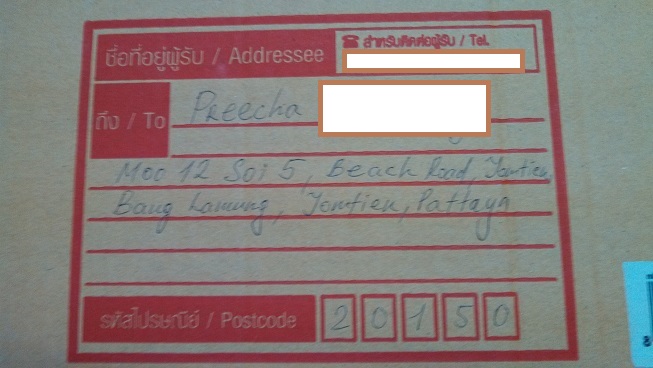 ชื่อที่อยู่ผู้รับ / Addressee
☎ สำหรับติดต่อผู้รับ / Tel.
ถึง / To
Preecha
Moo 12 Soi 5, Beach Road, Jomtien,
Bang Lamung, Jomtien, Pattaya
รหัสไปรษณีย์ / Postcode
20150